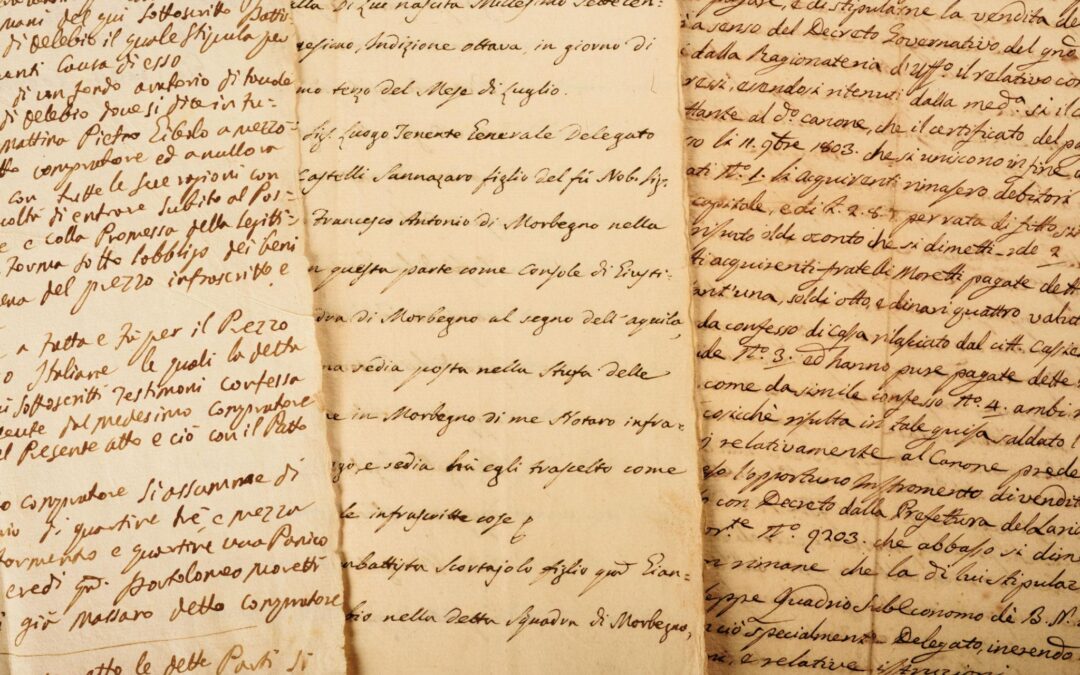 mani del qui sottoscritto Batti-
di Delebio il quale Stipula per
causa di esso
di un fondo aratorio di tavole
di Delebio dove si dice in fu-
mattina Pietro a mezzo-
compratore ed a nullora
con tutte le sue ragioni con
di entrare subito al Pos-
e e colla Promessa della legitti-
forma sotto lobbligo dei beni
del prezzo infroscritto e
a tutta e fù per il Prezzo
Italiane le quali la detta
sottoscritti Testimoni confessa
dal medesimo Compratore
Presente atto e ciò con il Patto
compratore si assume di
quartive trè e mezza
formento e quartive una Panico
eredi qm Bortolomeo Moretti
già Massaro detto compratore
atto le dette Parti si
di Lui nascita Millesimo Settecen-
esimo, Indizione ottava, in giorno di
mo terzo del Mese di Luglio.
Sig. Luogo Tenente Generale Delegato
Castelli Sannazaro figlio del fù Nob. Sig.
Francesco Antonio di Morbegno nella
n questa parte come Console di Giusti-
dra di Morbegno al segno dell'aquila,
na sedia posta nella Stufa delle
ne in Morbegno di me Notaro infra-
go, e sedia hà egli trascelto come
le infrascritte cose
mbattista Scortajolo figlio qm Gian-
bio nella detta Squadra di Morbegno,
e di stipularne la vendita de
a senso del Decreto Governativo del
dalla Ragionateria d'Uffo. il relativo con
ressi, essendosi ritenuti dalla meda. si il c
ttante al do. canone, che il certificato del pa
so li 11. 9bre 1803. che si uniscono in fine a
ati No. 1. li acquirenti rimasero debitori
capitale, e di £. 2. 8. per rata di fitto,
soldi 2
ti acquirenti fratelli Moretti pagate dett
ant'una, soldi otto, e dinari quattro valut
da confesso di Cassa rilasciato dal citt. Cassie
No. 3. ed hanno pure pagate dette
come da simile confesso No. 4. ambi
cosicchè risulta in tale guisa saldato l
relativamente al Canone prede
l'opportuno instromento di vendit
con Decreto dalla Prefettura del Lario
No. 9203. che abbasso si dim
n rimane che la di lui stipulaz
eppe Quadrio SubEconomo de B. N.
ciò specialmente Delegato, inerendo
ni, e relative istruzioni